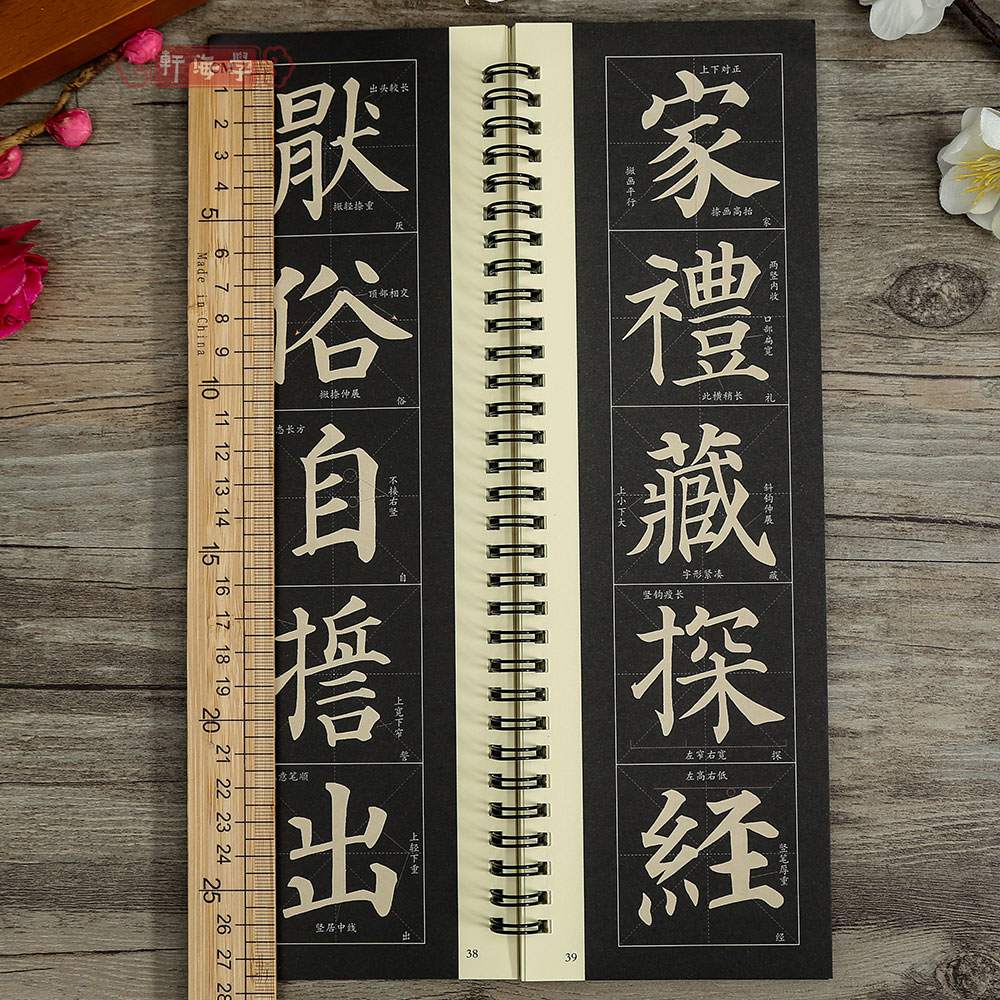 學海軒
1
2
3
4
5
6
7
8
9
10
11
12
13
14
15
16
17
18
19
20
21
22
23
24
25
26
27
28
Made in China
出头较长
厭
撇轻捺重
厌
顶部相交
俗
撇捺伸展
俗
态长方
自
不接右竖
自
誓
上宽下窄
誓
意笔顺
出
上轻下重
竖居中线
出
38
上下对正
家
撇画平行
捺画高抬
家
禮
两竖内收
口部扁宽
此横稍长
礼
藏
上小下大
斜钩伸展
字形紧凑
藏
竖钩瘦长
探
左窄右宽
探
左高右低
経
竖笔厚重
经
39